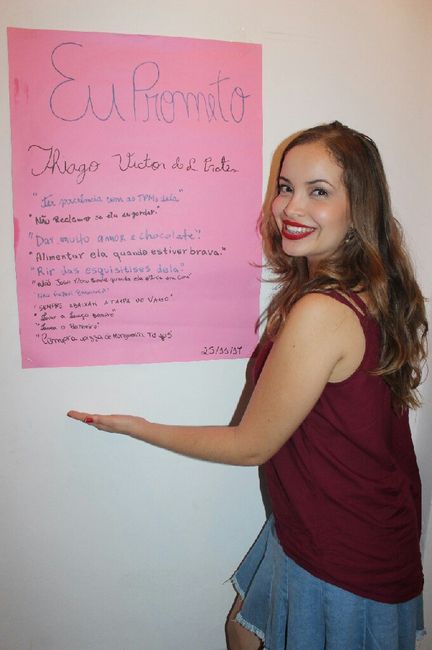 Eu Prometo
Thiago Victor de L. Prates
"Ter paciência com as TPMs dela"
"Não Reclamar se ela engordar."
"Dar muito amor e chocolate"
"Alimentar ela quando estiver brava."
"Rir das esquisitises dela"
"Não quando ela
"SEMPRE ABAIXAR A TAMPA DO VASO"
"Lavar a louça
"Lavar o Banheiro"
25/11/17